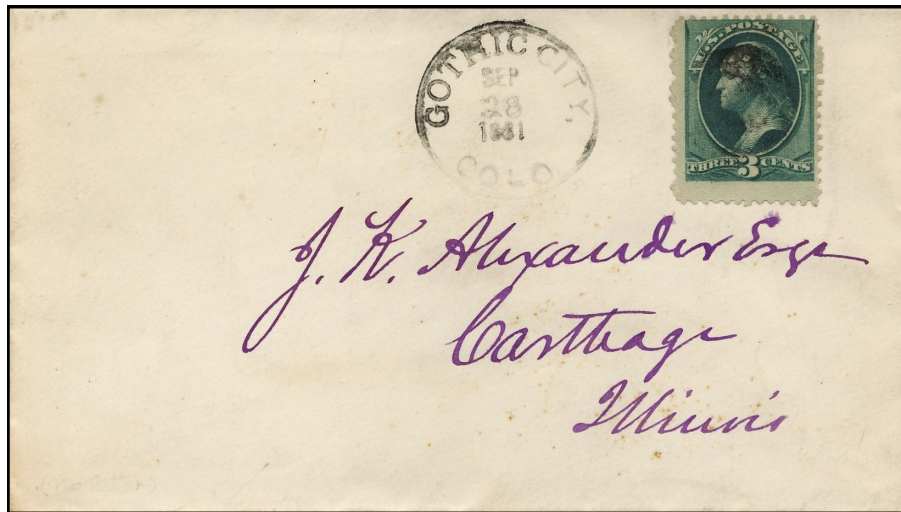 GOTHIC CITY,
SEP
28
1881
COLO
U.S. POSTAGE
THREE 3 CENTS
J. K. Alexander Esqr
Carthage
Illinois